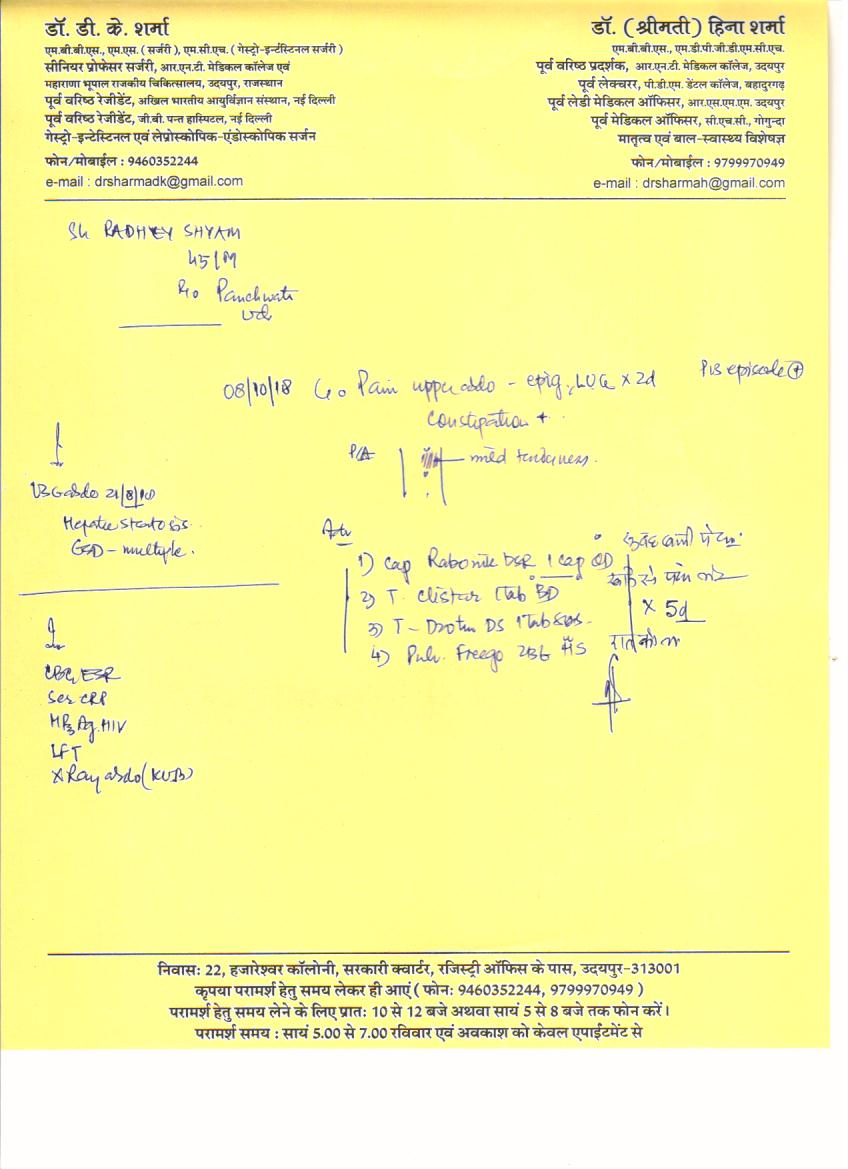 डॉ. डी. के. शर्मा
एम.बी.बी.एस., एम.एस. (सर्जरी), एम.सी.एच. (गेस्ट्रो-इन्टेंस्टिनल सर्जरी)
सीनियर प्रोफेसर सर्जरी, आर.एन.टी. मेडिकल कॉलेज एवं
महाराणा भूपाल राजकीय चिकित्सालय, उदयपुर, राजस्थान
पूर्व वरिष्ठ रेजीडेंट, अखिल भारतीय आयुर्विज्ञान संस्थान, नई दिल्ली
पूर्व वरिष्ठ रेजीडेंट, जी.बी. पन्त हास्पिटल, नई दिल्ली
गेस्ट्रो-इन्टेस्टिनल एवं लेप्रोस्कोपिक-एंडोस्कोपिक सर्जन
फोन/मोबाईल : 9460352244
e-mail : drsharmadk@gmail.com
डॉ. (श्रीमती) हिना शर्मा
एम.बी.बी.एस., एम.डी.पी.जी.डी.एम.सी.एच.
पूर्व वरिष्ठ प्रदर्शक, आर.एन.टी. मेडिकल कॉलेज, उदयपुर
पूर्व लेक्चरर, पी.डी.एम. डेंटल कॉलेज, बहादुरगढ़
पूर्व लेडी मेडिकल ऑफिसर, आर.एस.एम.एम. उदयपुर
पूर्व मेडिकल ऑफिसर, सी.एच.सी., गोगुन्दा
मातृत्व एवं बाल-स्वास्थ्य विशेषज्ञ
फोन/मोबाईल : 9799970949
e-mail : drsharmah@gmail.com
Sh RADHEY SHYAM
45/M
R/o Panchwati
Udr
08/10/18 C/o Pain upper abdo - epig, LUQ x 2d
episode +
Constipation +
P/A mild tenderness.
USG abdo 21/8/18
Hepatic steatosis
GSD - multiple.
Adv
1) Cap Rabonik DSR 1 cap OD
2) T. Clistar 1 Tab BD
3) T- Drotin DS 1 Tab SOS
x 5d
4) Pulv. Freego HS
CBC, ESR
Ser CRP
HBsAg, HIV
LFT
X Ray abdo (KUB)
निवासः 22, हजारेश्वर कॉलोनी, सरकारी क्वार्टर, रजिस्ट्री ऑफिस के पास, उदयपुर-313001
कृपया परामर्श हेतु समय लेकर ही आएं ( फोनः 9460352244, 9799970949 )
परामर्श हेतु समय लेने के लिए प्रातः 10 से 12 बजे अथवा सायं 5 से 8 बजे तक फोन करें।
परामर्श समय : सायं 5.00 से 7.00 रविवार एवं अवकाश को केवल एपाईंटमेंट से